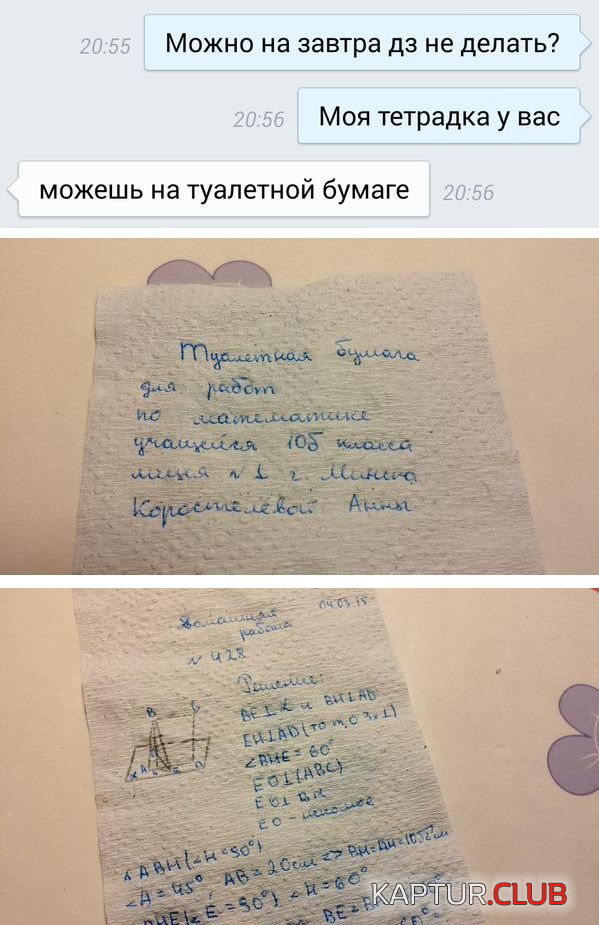 20:55
Можно на завтра дз не делать?
20:56
Моя тетрадка у вас
можешь на туалетной бумаге
20:56
Туалетная бумага
для работ
по математике
учащейся 10б класса
лицея №1 г. Минска
Коростелёвой Анны
04.03.15
Домашняя
работа
№ 428
Решение:
BE⊥α и BH⊥AD
EH⊥AD (по т. о 3х⊥)
∠BHE = 60°
EO⊥(ABC)
EO⊥BH
EO - искомое
ΔABH (∠H = 90°)
∠A = 45°, AB = 20см => BH = AH =
(∠E = 90°) ∠H = 60°
BE =
KAPTUR.CLUB